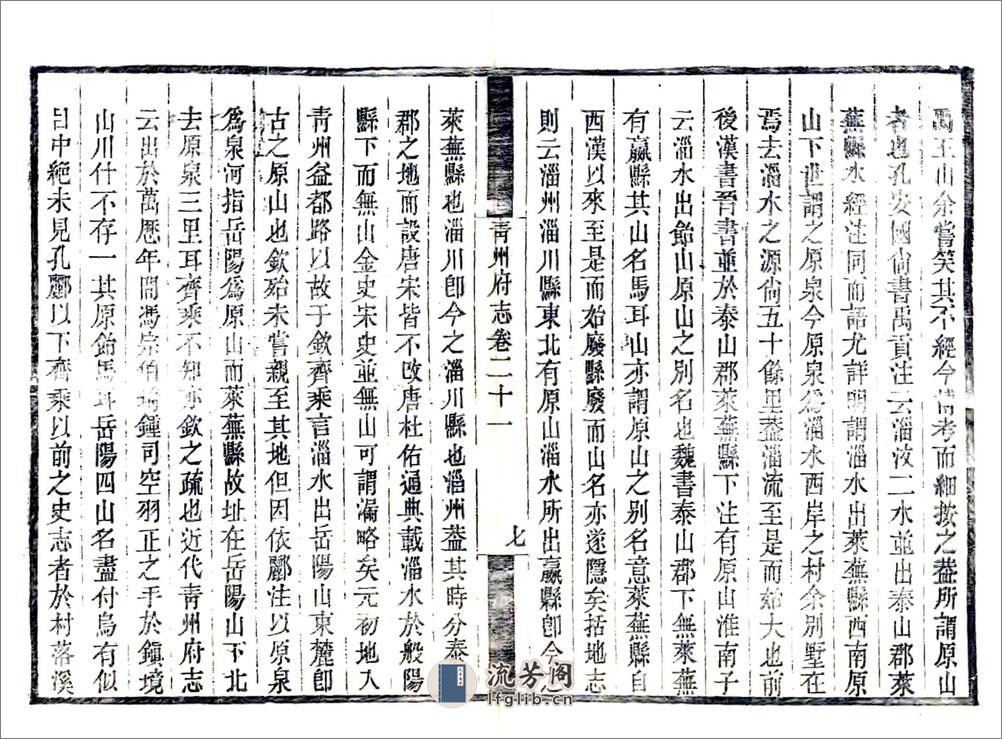 禹王山余嘗笑其不經今博考而細按之蓋所謂原山
者也孔安國尚書禹貢注云淄汶二水並出泰山郡萊
蕪縣水經注同而語尤詳明謂淄水出萊蕪縣西南原
山下世謂之原泉今原泉爲淄水西岸之村余別墅在
焉去淄水之源尚五十餘里葢淄流至是而始大也前
後漢書晉書並於泰山郡萊蕪縣下注有原山淮南子
云淄水出飴山原山之別名也魏書泰山郡下無萊蕪
有嬴縣其山名馬耳山亦謂原山之別名意萊蕪縣自
西漢以來至是而始廢縣廢而山名亦遂隱矣括地志
則云淄州淄川縣東北有原山淄水所出嬴縣卽今之
青州府志卷二十一
七
萊蕪縣也淄川卽今之淄川縣也淄州葢其時分泰
郡之地而設唐宋皆不改唐杜佑通典載淄水於般陽
縣下而無山金史宋史並無山可謂漏略矣元初地入
靑州益都路以故于欽齊乘言淄水出岳陽山東麓卽
古之原山也欽殆未嘗親至其地但因依酈注以原泉
爲泉河指岳陽爲原山而萊蕪縣故址在岳陽山下北
去原泉三里耳齊乘不知亦欽之疏也近代靑州府志
云出於萬歷年間馮宗伯琦鍾司空羽正之手於鎭境
山川什不存一其原飴馬耳岳陽四山名盡付烏有似
目中絶未見孔酈以下齊乘以前之史志者於村落溪
流芳阁
lfglib.cn